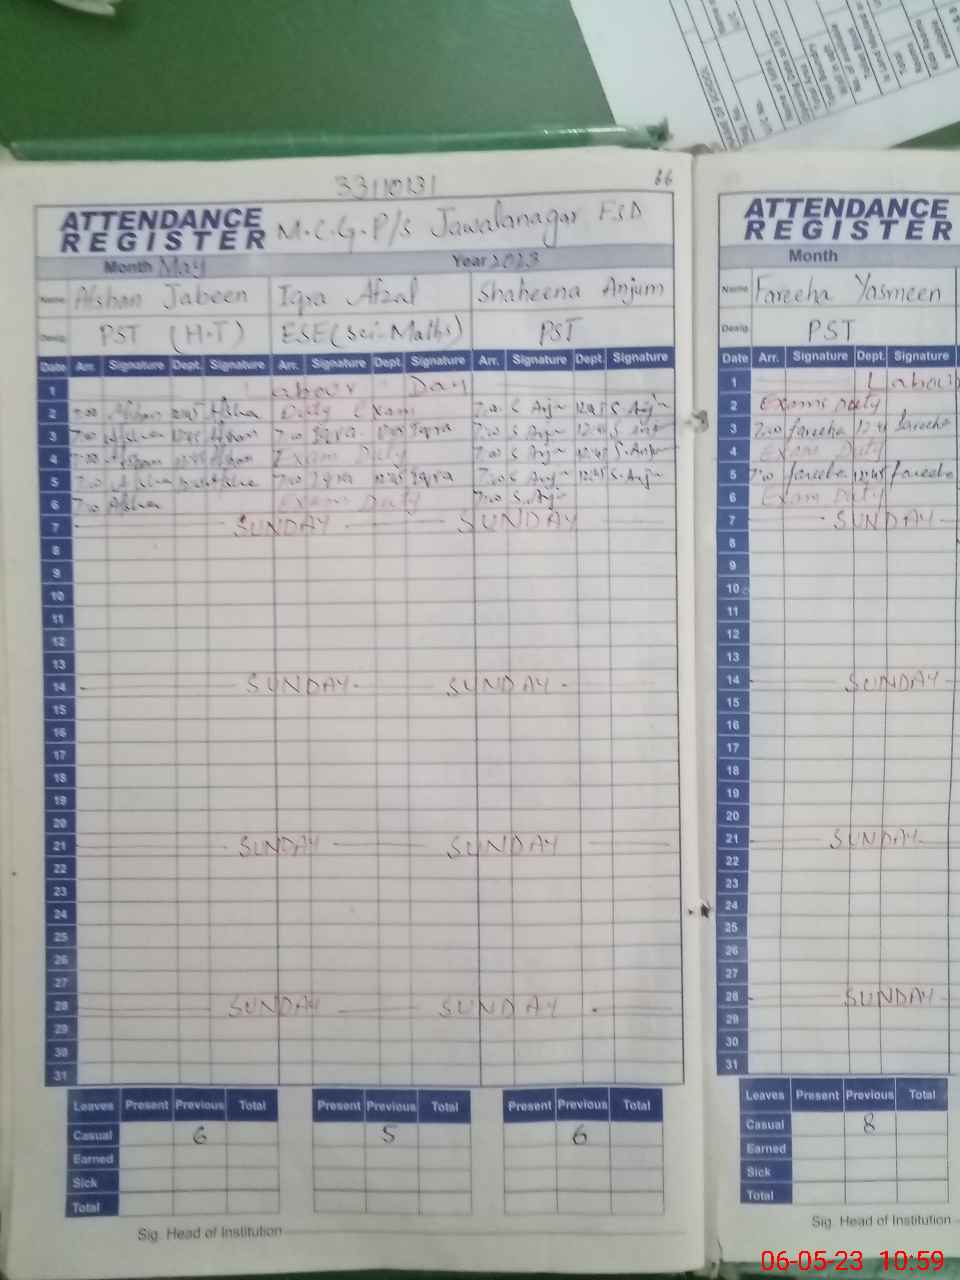 33110131
66
ATTENDANCE REGISTER M.C.G.P/S Jawalanagar FSD
Month May Year 2023
Name Afshan Jabeen Iqra Afzal Shaheena Anjum
Desig. PST (H.T) ESE (Sci-Maths) PST
Date Arr. Signature Dept. Signature Arr. Signature Dept. Signature Arr. Signature Dept. Signature
1 Labour Day
2 7:00 Afshan 12:45 Afshan Duty Exam 7:00 S Anju 12:45 S. Anju
3 7:00 Afshan 12:45 Afshan 7:00 Iqra Iqra 7:00 S Anju 12:45 S Anju
4 7:00 Afshan 12:45 Afshan Exam Duty 7:00 S Anju 12:45 S. Anju
5 7:00 Afshan 12:45 Afshan 7:00 Iqra 12:45 Iqra 7:00 S Anju 12:45 S. Anju
6 7:00 Afshan Exam Duty 7:00 S. Anju
7 SUNDAY SUNDAY
8
9
10
11
12
13
14 SUNDAY SUNDAY
15
16
17
18
19
20
21 SUNDAY SUNDAY
22
23
24
25
26
27
28 SUNDAY SUNDAY
29
30
31
Leaves Present Previous Total Present Previous Total Present Previous Total
Casual 6 5 6
Earned
Sick
Total
Sig. Head of Institution
ATTENDANCE REGISTER
Month
Name Fareeha Yasmeen
Desig. PST
Date Arr. Signature Dept. Signature
1 Labour
2 Exams Duty
3 7:00 fareeha 12:45 fareeha
4 Exam Duty
5 7:00 fareeha 12:45 fareeha
6 Exam Duty
7 SUNDAY
8
9
10
11
12
13
14 SUNDAY
15
16
17
18
19
20
21 SUNDAY
22
23
24
25
26
27
28 SUNDAY
29
30
31
Leaves Present Previous Total
Casual 8
Earned
Sick
Total
Sig. Head of Institution
06-05-23 10:59